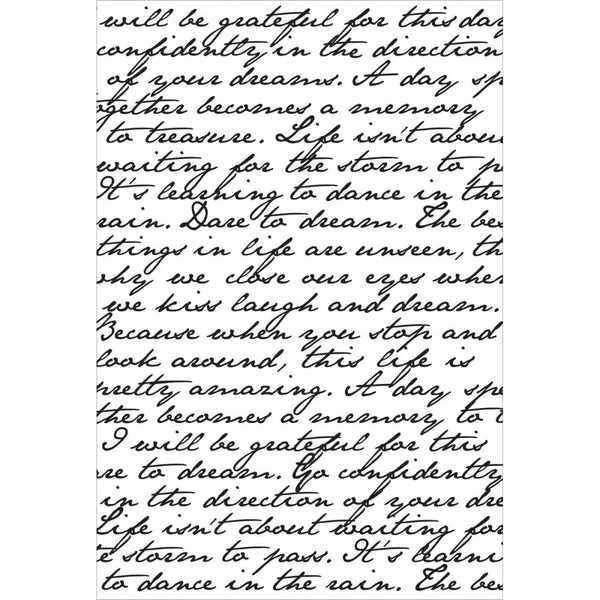 will be grateful for this day
confidently in the direction
of your dreams. A day sp
ogether becomes a memory
to treasure. Life isn't abou
waiting for the storm to p
It's learning to dance in the
rain. Dare to dream. The bes
things in life are unseen, th
why we close our eyes when
we kiss laugh and dream.
Because when you stop and
look around, this life is
pretty amazing. A day spe
ther becomes a memory to t
I will be grateful for this
are to dream. Go confidently
in the direction of your dre
Life isn't about waiting for
e storm to pass. It's learni
to dance in the rain. The bes